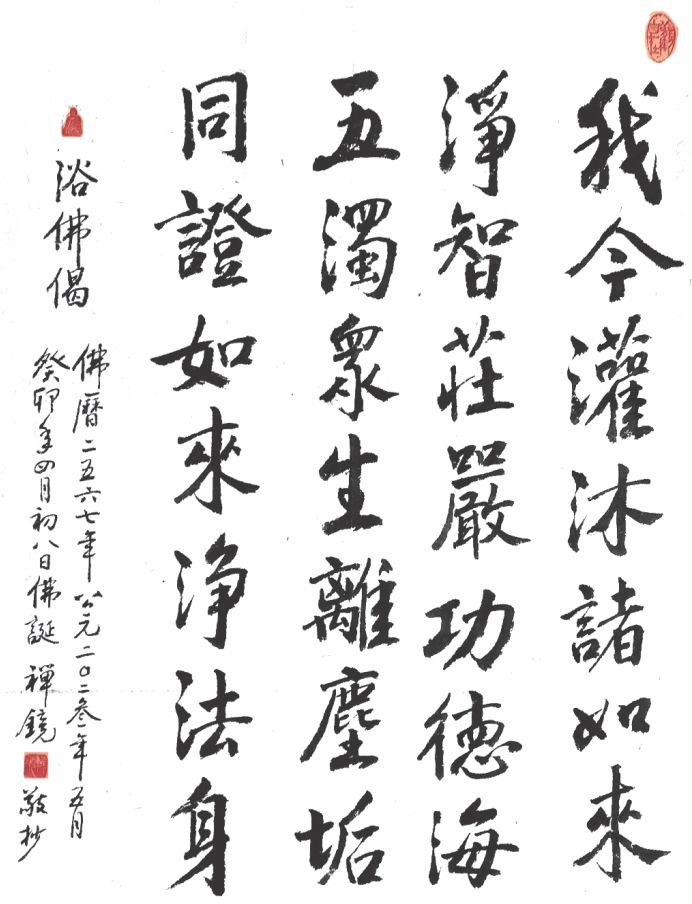 我今灌沐諸如來
淨智莊嚴功德海
五濁衆生離塵垢
同證如來淨法身
浴佛偈
佛曆二五六七年公元二〇二叁年五月
癸卯年四月初八日佛誕禪鏡敬抄